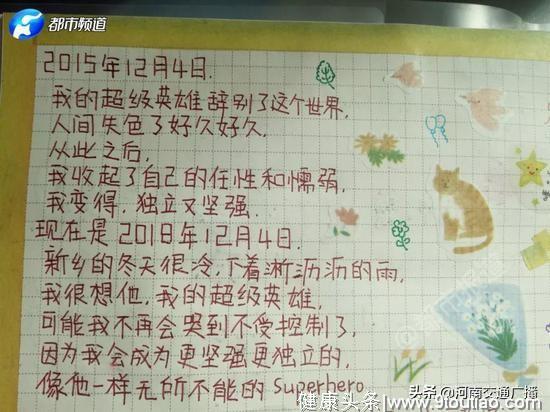 都市频道
2015年12月4日.
我的超级英雄辞别了这个世界,
人间失色了好久好久.
从此之后,
我收起了自己的任性和懦弱,
我变得,独立又坚强.
现在是2018年12月4日.
新乡的冬天很冷,下着淅沥沥的雨,
我很想他,我的超级英雄,
可能我不再会哭到不受控制了,
因为我会成为更坚强更独立的,
像他一样无所不能的Superhero
头条@河南交通广播
健康头条 www.9fouliao.com